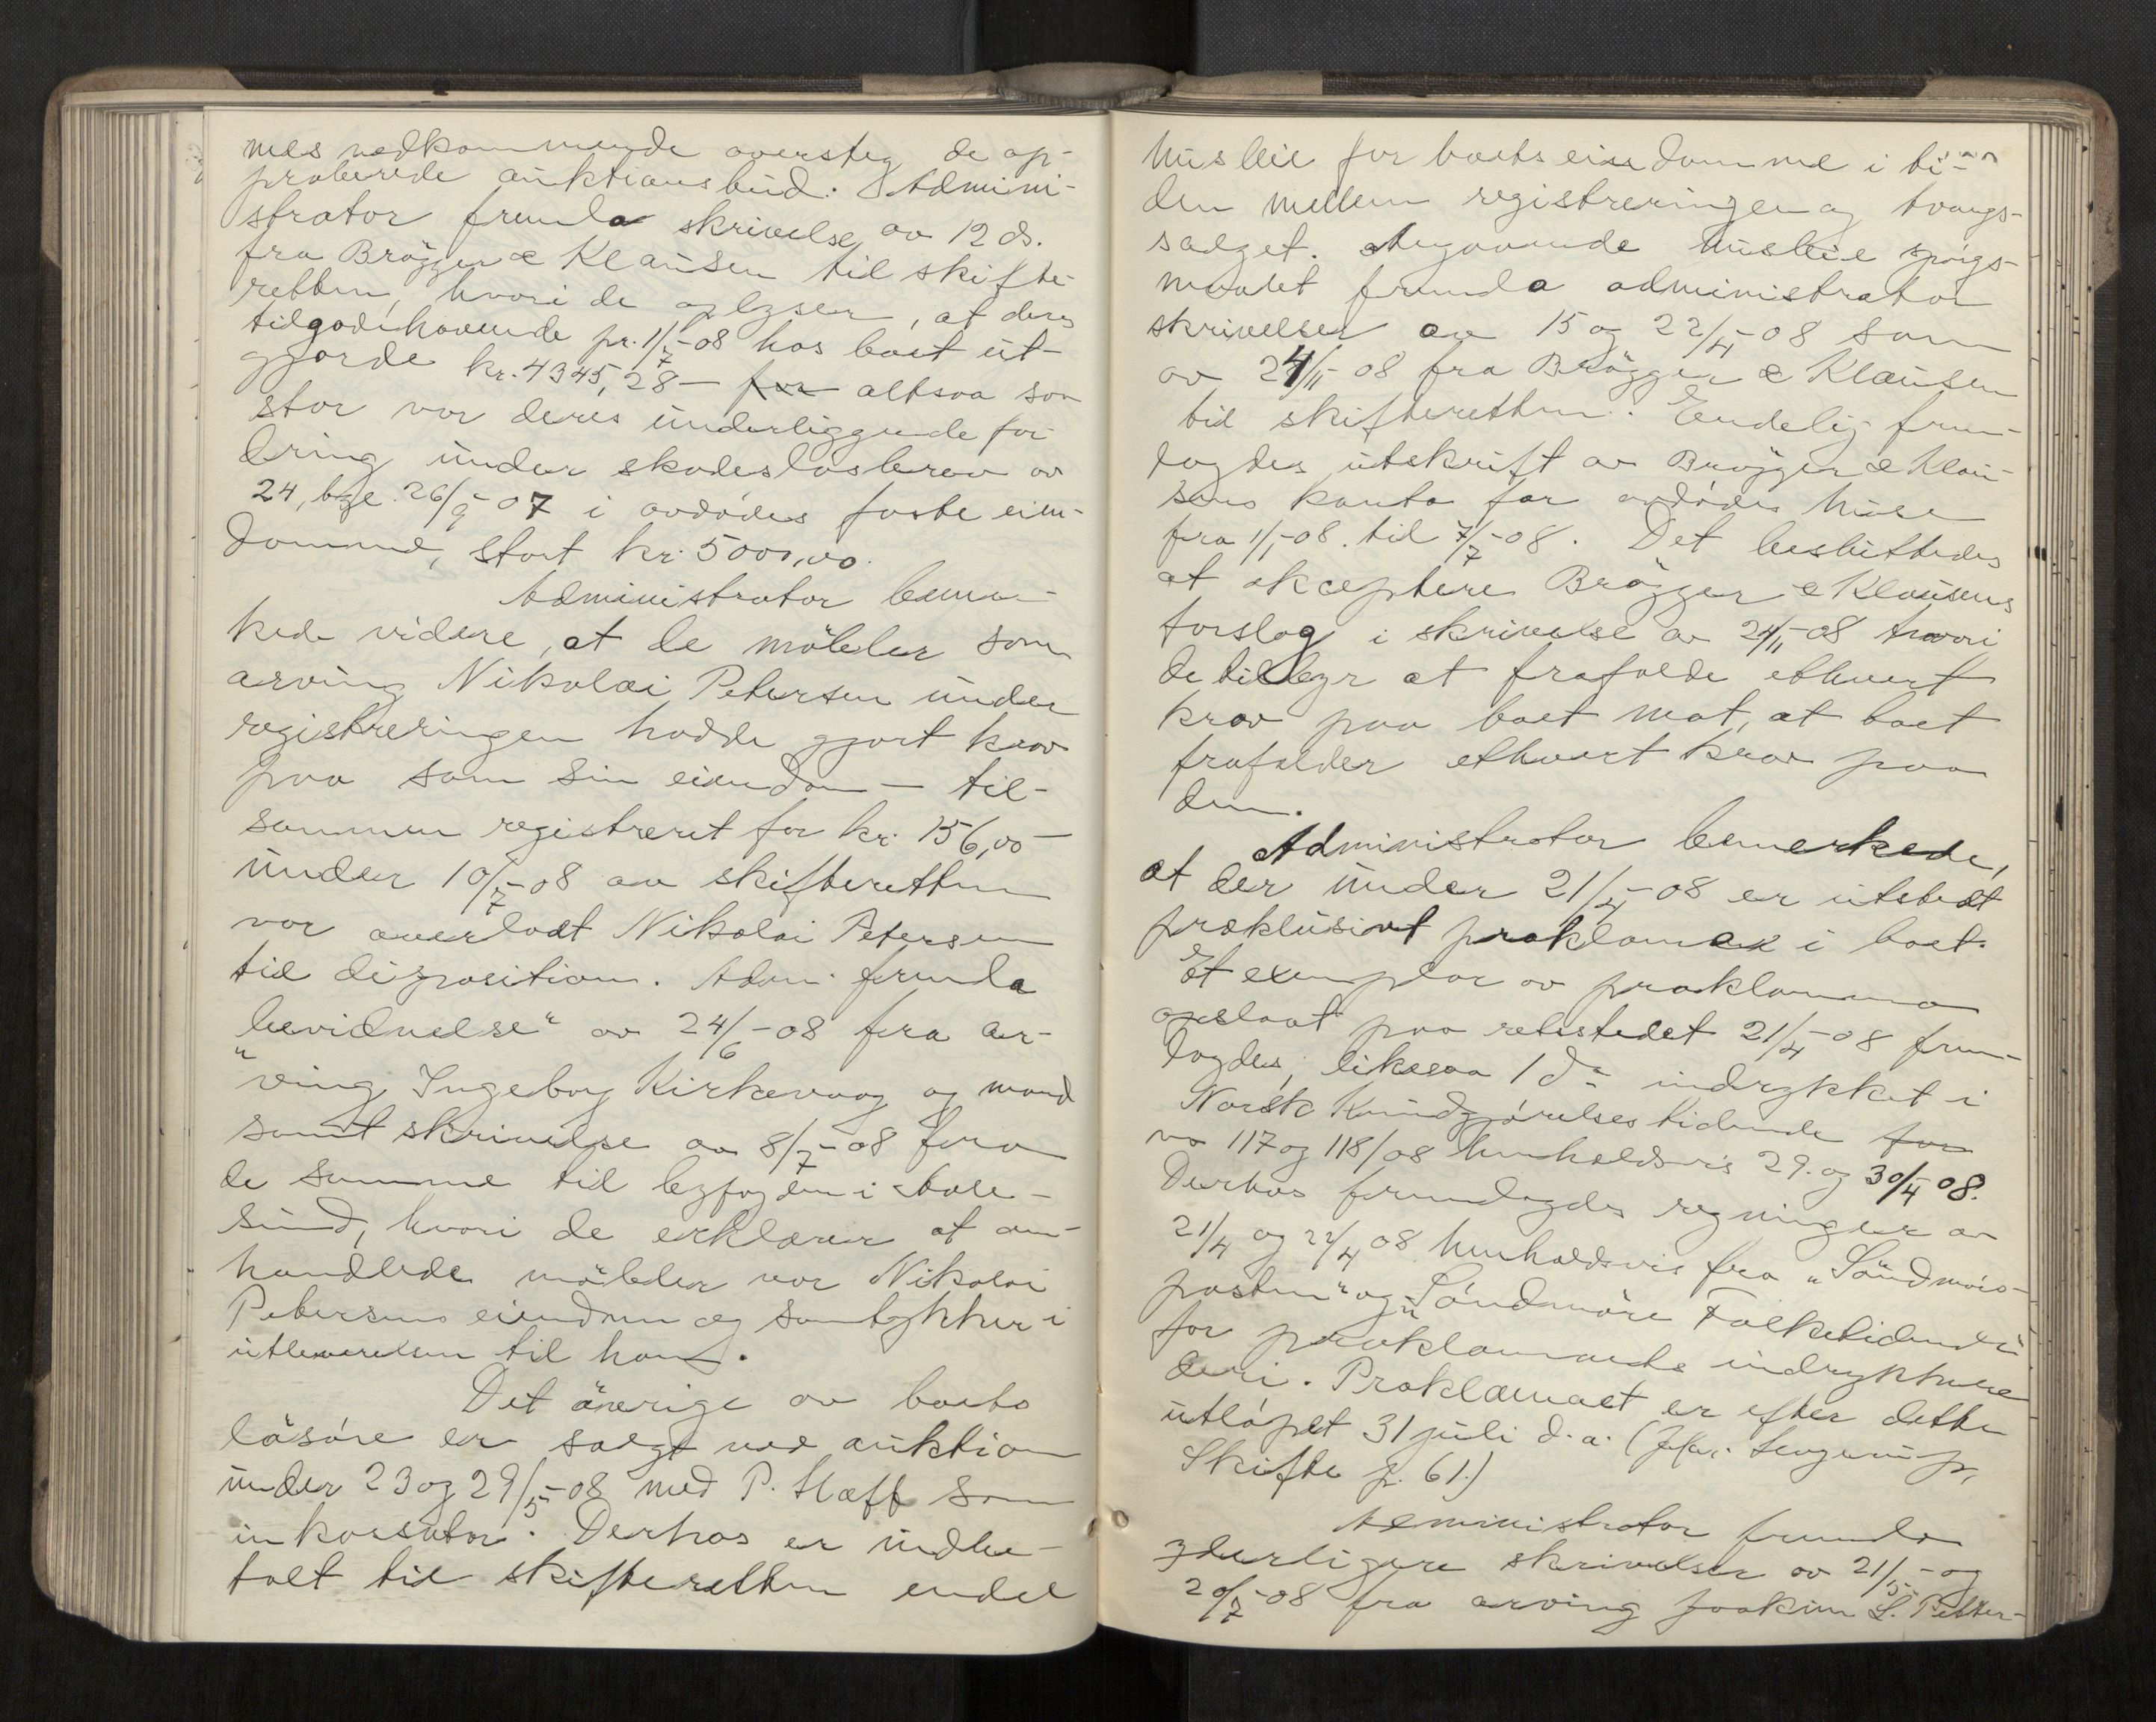 mes vedkommende oversteg de ap-
proberede auktionsbud. Admini-
strator fremla skrivelse av 12 ds.
fra Brøgger & Klausen til skifte-
retten, hvori de oplyser, at deres
tilgodehavende pr. 1/7-08 hos boet ut-
gjorde kr. 4345,28 - for altsaa saa
stor var deres underliggende for-
dring under skadesløsbrev av
24, tgl. 26/9-07 i avdødes faste eien-
domme, stort kr. 5000,00.
Administrator bemær-
kede videre, at de møbler som
arving Nikolai Petersen under
registreringen hadde gjort krav
paa som sin eiendom - til-
sammen registreret for kr. 156,00 -
under 10/7-08 av skifteretten
var overladt Nikolai Petersen
til disposition. Adm. fremla
"bevidnelse" av 24/6-08 fra ar-
ving Ingeborg Kirkevaag og mand
samt skrivelse av 8/7-08 fra
de samme til byfogden i Aale-
sund, hvori de erklærer at om-
handlede møbler var Nikolai
Petersens eiendom og samtykker i
utleverelsen til ham.
Det øvrige av boets
løsøre er solgt ved auktion
under 23 og 29/5-08 med P. Staff som
inkassator. Derhos er indbe-
talt til skifteretten endel
husleie for boets eiendomme i ti-
den mellem registreringen og tvangs-
salget. Angaaende husleie spørgs-
maalet fremla administrator
skrivelser av 15 og 22/4-08 som
av 24/11-08 fra Brøgger & Klausen
til skifteretten. Endelig frem-
lagdes utskrift av Brøgger & Klau-
sens konto for avdødes huse
fra 1/1-08 til 7/7-08. Det besluttedes
at akceptere Brøgger & Klausens
forslag i skrivelse av 24/11-08 hvori
de tilbyr at frafalde ethvert
krav paa boet mot, at boet
frafalder ethvert krav paa
dem.
Administrator bemerkede,
at der under 21/4-08 er utstedt
præklusivt proklama i boet.
Et exemplar av proklama
opslaat paa retsstedet 21/4-08 frem-
lagdes, likesaa 1 do indrykket i
Norsk Kundgjørelsestidende for
no 117 og 118/08 henholdsvis 29. og 30/4 08.
Derhos fremlagdes regninger av
21/4 og 22/4 08 henholdsvis fra "Søndmørs-
posten" og "Søndmøre Folketidende"
for proklamaets indrykkelse
deri. Proklamaet er efter dette
utløpet 31 juli d.a. (jfr.
Skifte p. 61.)
Administrator fremla
yderligere skrivelser av 21/5- og
20/7-08 fra arving Joakim L. Petter-